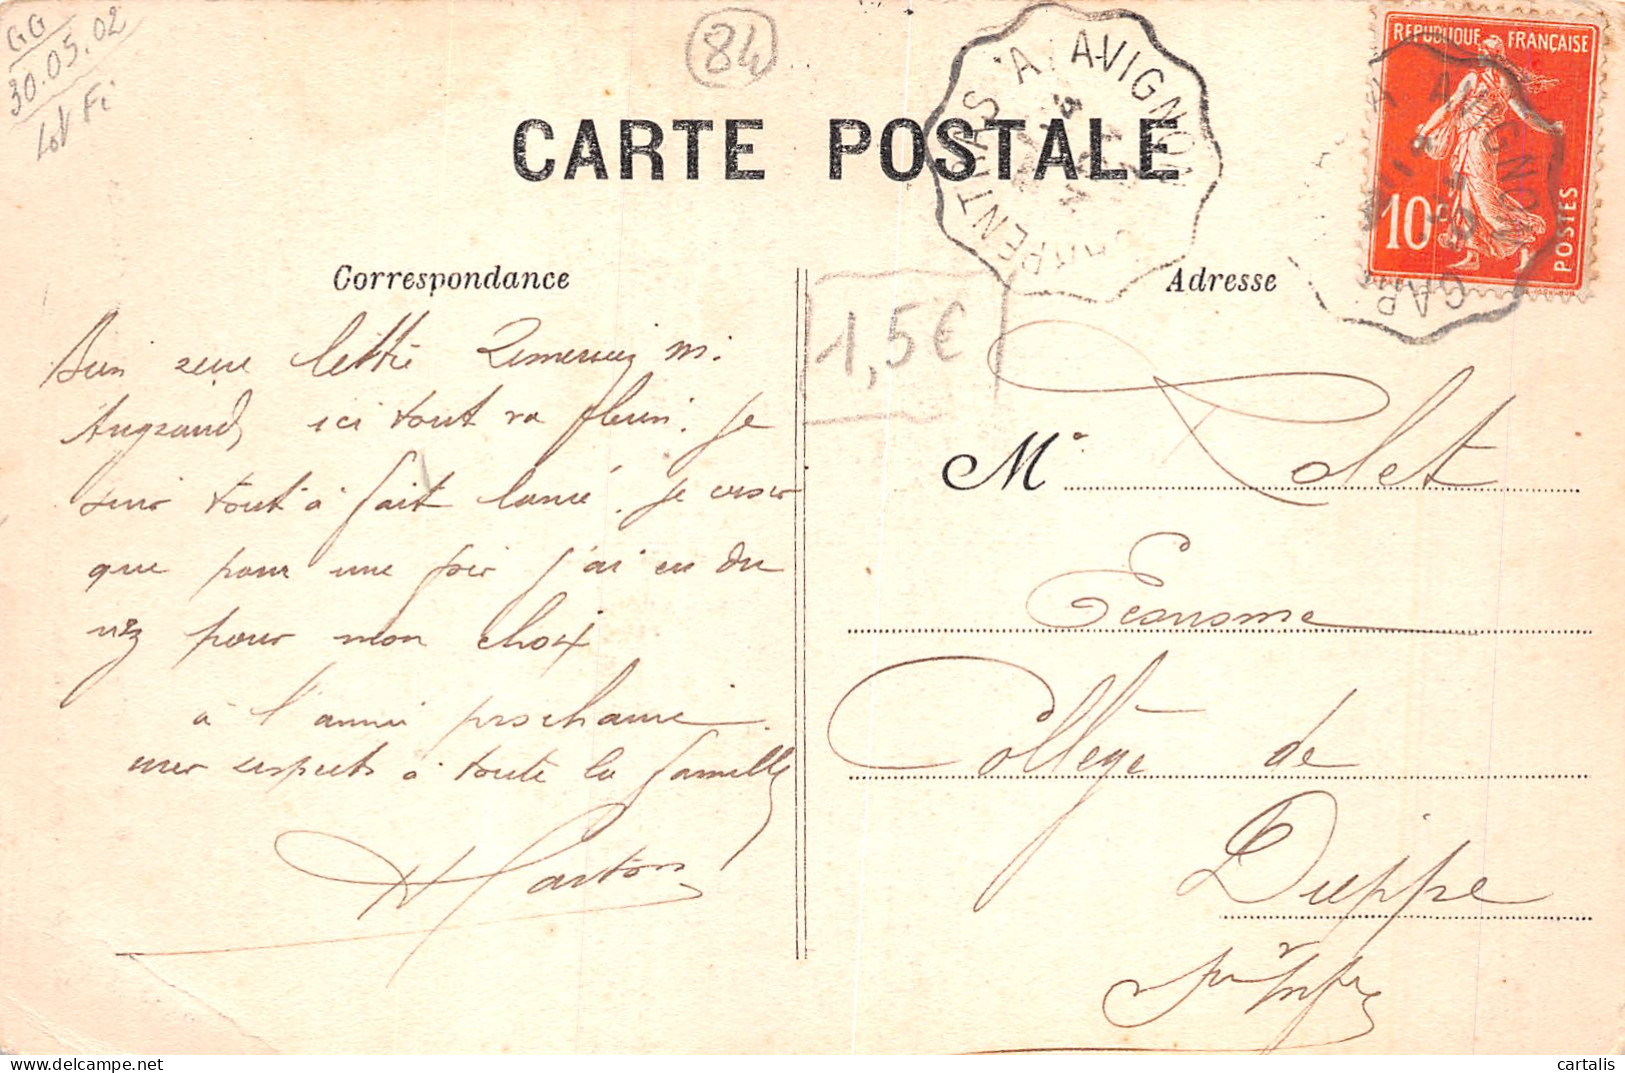 GG
30.05.02
Lot Fi
84
CARTE POSTALE
CARPENTRAS A AVIGNON
REPUBLIQUE FRANÇAISE
10c
POSTES
A AVIGNON
CAR
Correspondance
Adresse
1,5€
lettre Remerciez m.
Angrand, ici tout va fleuri. Je
suis tout à fait lancé. Je crois
que pour une fois j'ai eu du
nez pour mon choix
à l'année prochaine
mes respects à toute la famille
Mr Rolet
Econome
Collège de
Dieppe
Sne Infre
cartalis